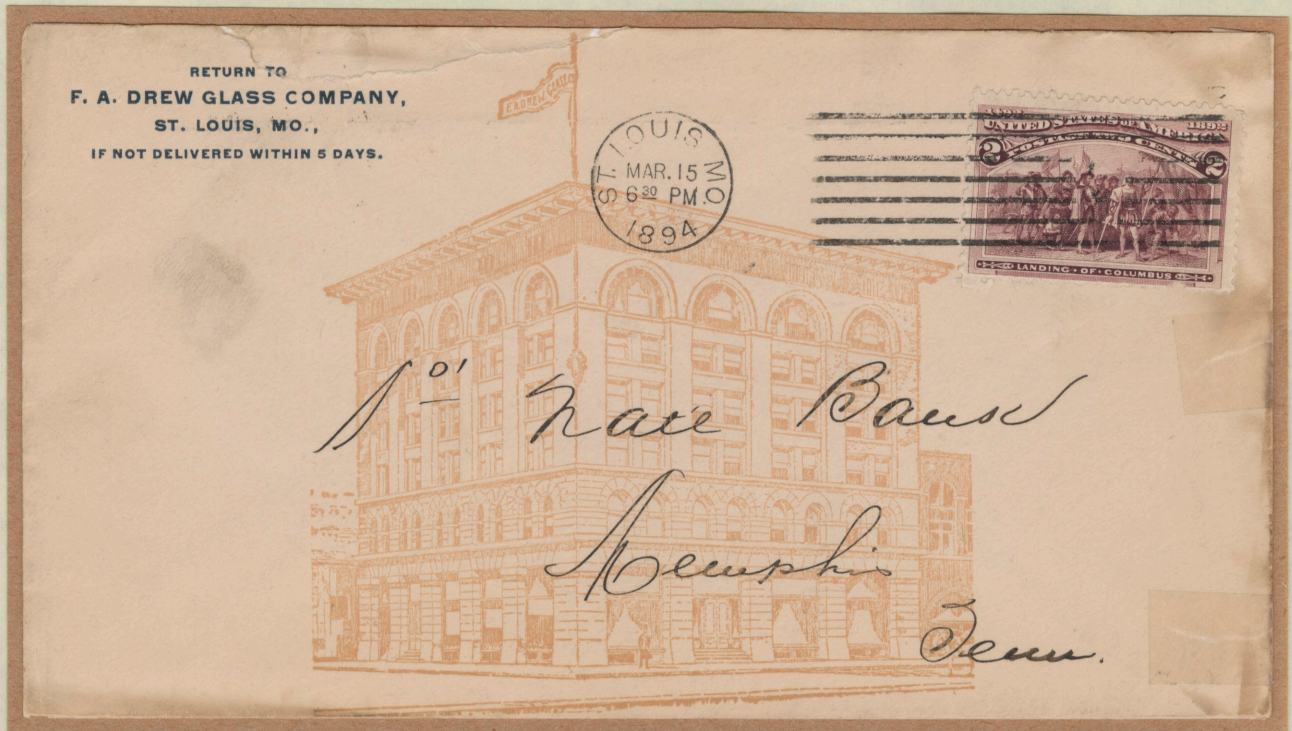 RETURN TO
F. A. DREW GLASS COMPANY,
ST. LOUIS, MO.,
IF NOT DELIVERED WITHIN 5 DAYS.
F.A. DREW GLASS CO
ST. LOUIS MO.
MAR. 15
6 30 PM.
1894
1492 1892
UNITED STATES OF AMERICA
POSTAGE TWO CENTS
2 2
LANDING · OF · COLUMBUS
1st Natl Bank
Memphis
Tenn.